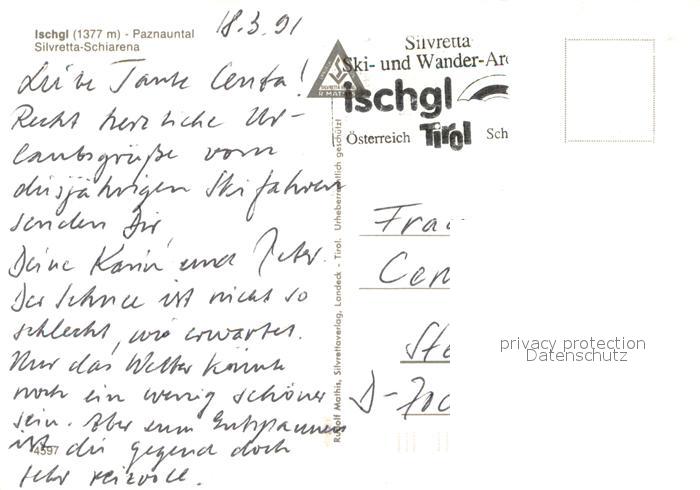 Ischgl (1377 m) - Paznauntal
Silvretta-Schiarena
18.3.91
Liebe Tante Centa!
Recht herzliche Ur-
laubsgrüße vom
diesjährigen Skifahren
senden Dir
Deine Karin und Peter.
Der Schnee ist nicht so
schlecht, wie erwartet.
Nur das Wetter könnte
noch ein wenig schöner
sein. Aber zum Entspannen
ist die Gegend doch
sehr reizvoll.
4597
Rudolf Mathis, Silvrettaverlag, Landeck - Tirol. Urheberrechtlich geschützt
R MATHIS
Silvretta
Ski- und Wander-Are
ischgl
Österreich Tirol Sch
Frau
Cen
Ste
D-
privacy protection
Datenschutz